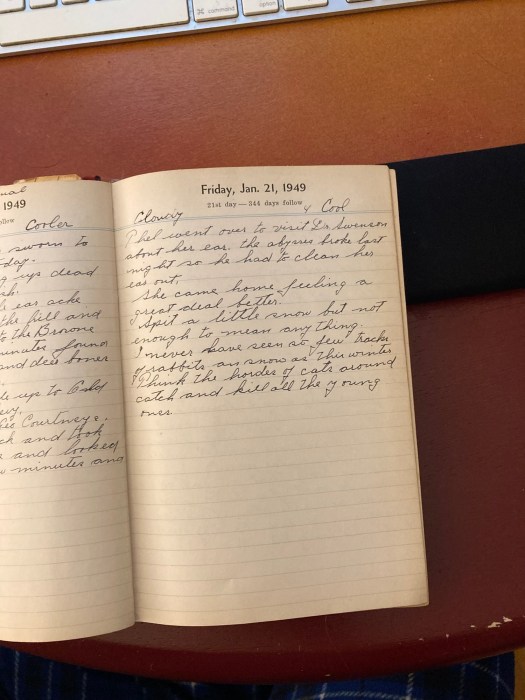 command
option
1949
Cooler
sworn to
day.
up dead
ear ache
the hill and
to the Browne
minutes found
and deer bones
up to Gold
Courtneys.
ck and took
and looked
w minutes and
Friday, Jan. 21, 1949
21st day — 344 days follow
Cloudy & Cool
Phel went over to visit Dr Swenson
about her ear. the abyses broke last
night so he had to clean her
ear out.
She came home feeling a
great deal better.
Spit a little snow but not
enough to mean any thing.
I never have seen so few tracks
of rabbits on snow as this winter
I think the hordes of cats around
catch and kill all the young
ones